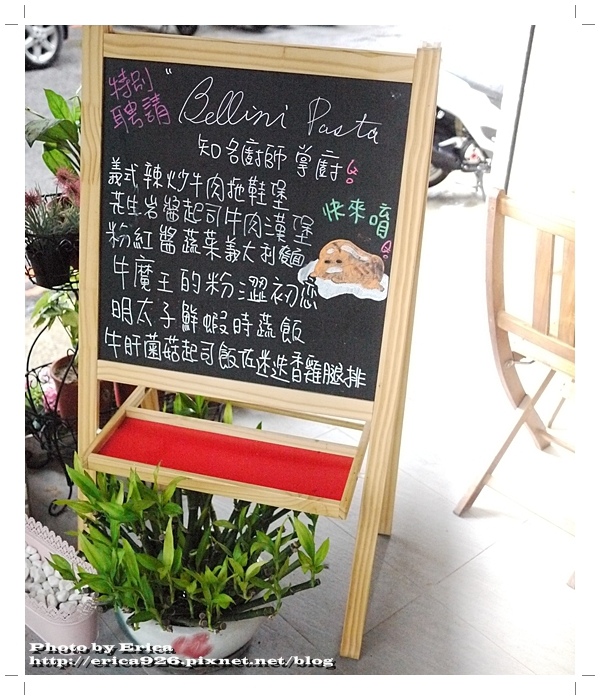 特別
聘請
"Bellini Pasta
知名廚師 掌廚!
義式辣炒牛肉拖鞋堡
花生岩醬起司牛肉漢堡
快來唷!
粉紅醬蔬菜義大利麵
牛魔王的粉澀初戀
明太子鮮蝦時蔬飯
牛肝菌菇起司飯佐迷迭香雞腿排
Photo by Erica
http://erica926.pixnet.net/blog